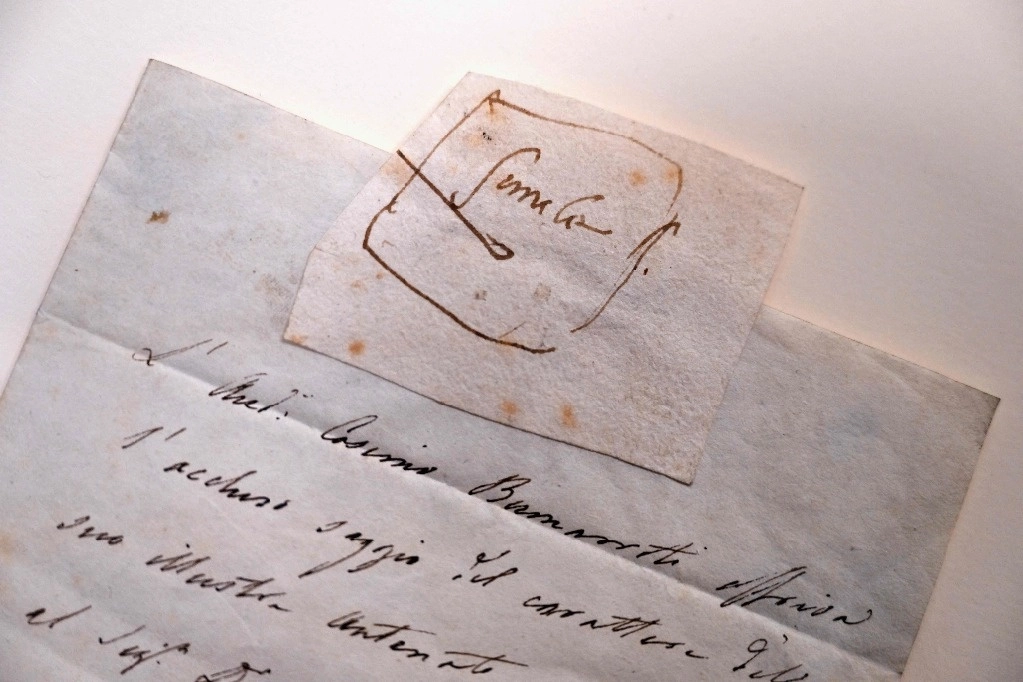 simile
L' Aud.e Cosimo Buonarroti offriva
l'accluso saggio del carattere del
suo illustre Antenato
al Sig.r